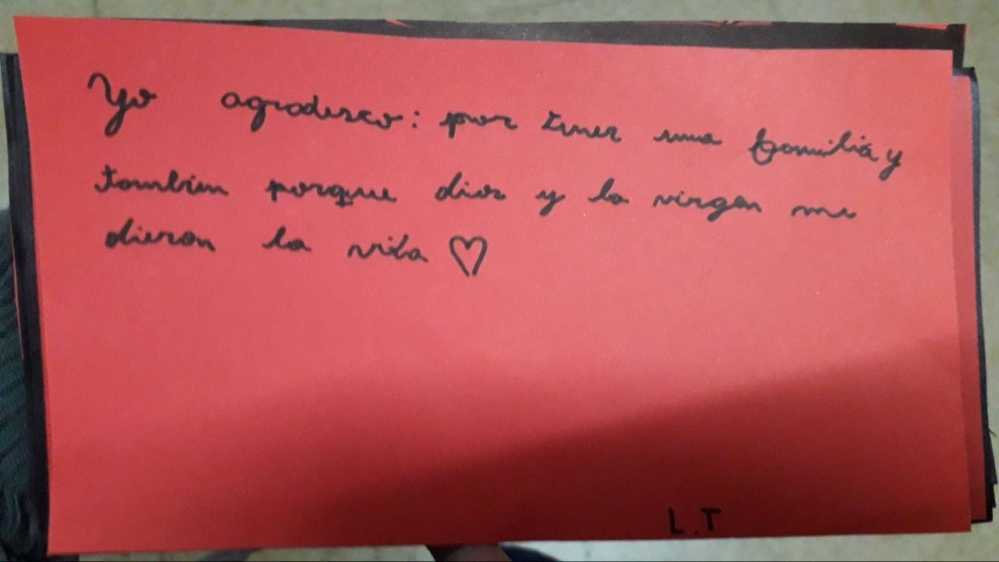 Yo agradesco: por tener una familia y
tambien porque dios y la virgen me
dieron la vida ♡
L.T